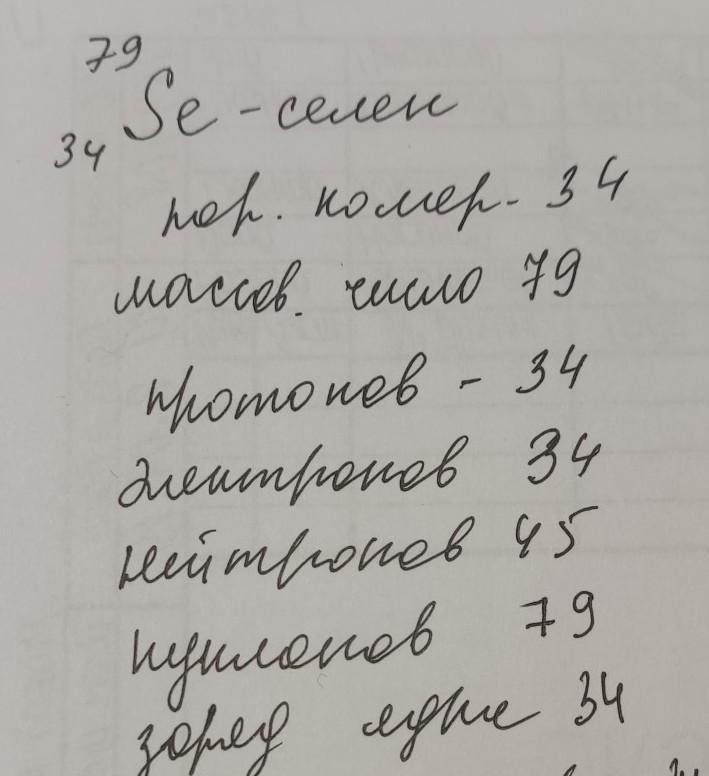 79
34 Se - селен
пор. номер - 34
массов. число 79
протонов - 34
электронов 34
нейтронов 45
нуклонов 79
заряд ядра 34